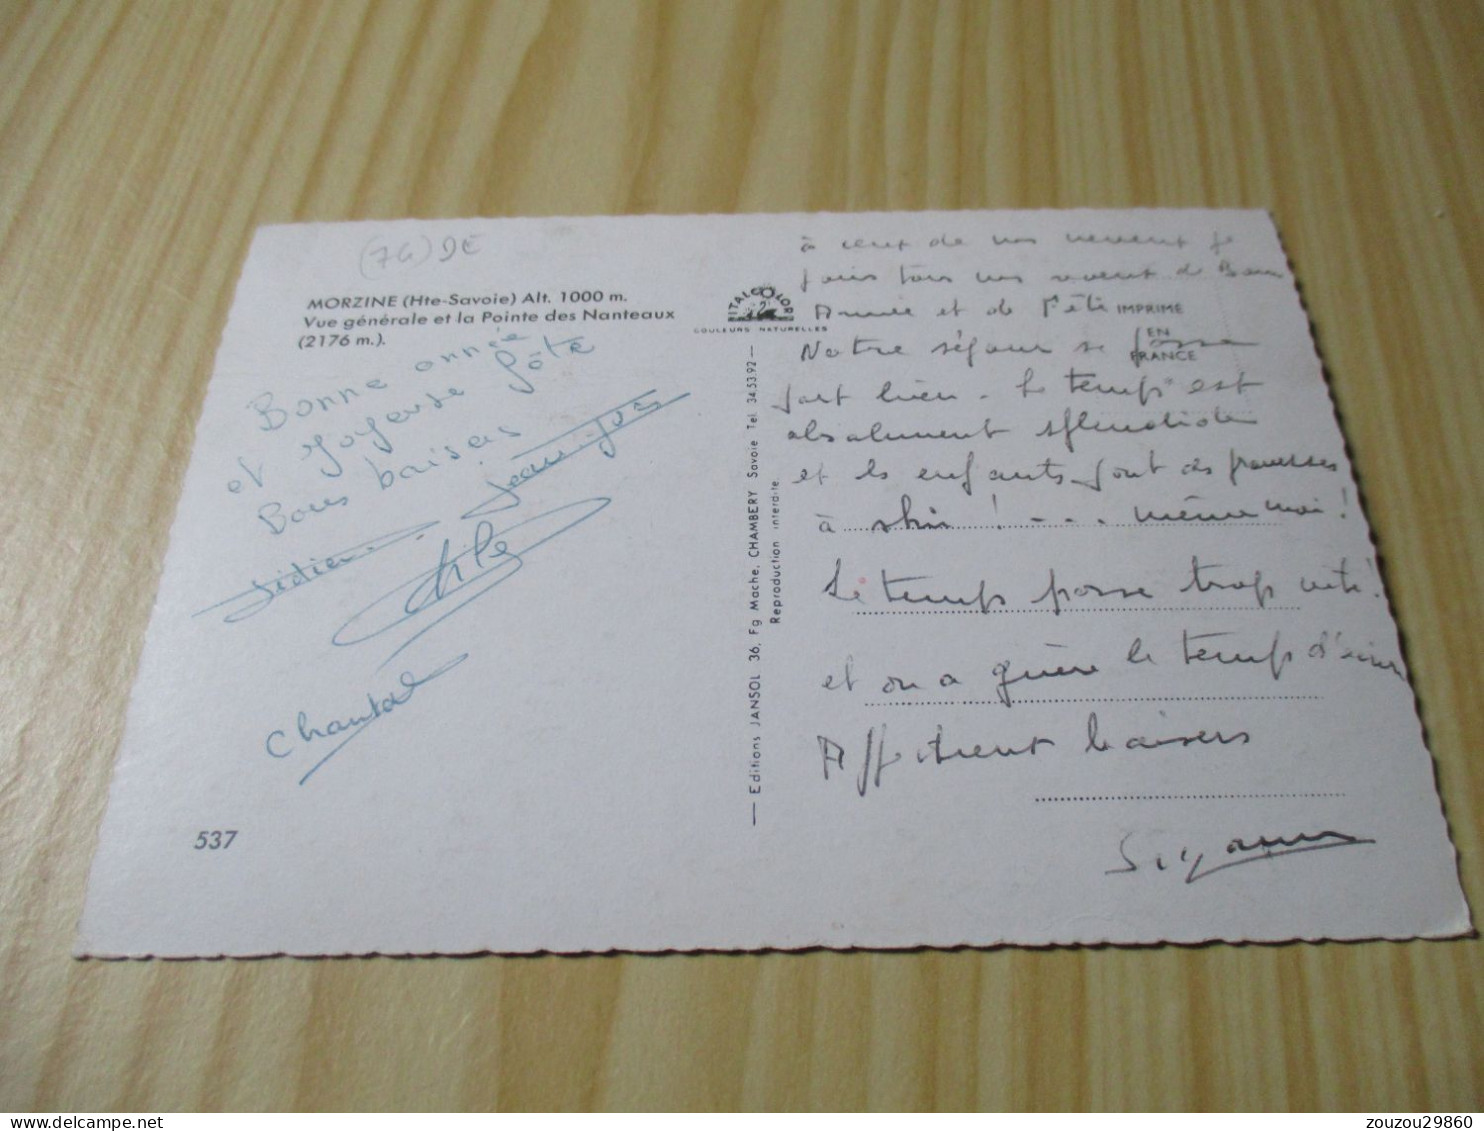 (74) DE
MORZINE (Hte-Savoie) Alt. 1000 m.
Vue générale et la Pointe des Nanteaux
(2176 m.).
Bonne année
et joyeuse fôte
Bons baisers
jean-yves
Didier
Chantal
537
VITALCOLOR
COULEURS NATURELLES
— Editions JANSOL 36, Fg Mache, CHAMBERY Savoie Tel. 34.53.92 —
Reproduction interdite.
IMPRIME
EN
FRANCE
à ceux de nos
Année et de Fête
Notre séjour se passe
fort bien. Le temps est
absolument splendide
et les enfants font des prouesses
à skis ! - - - même moi !
Le temps passe trop vite !
et on a guère le temps d'écrire
Affectueux baisers
zouzou29860